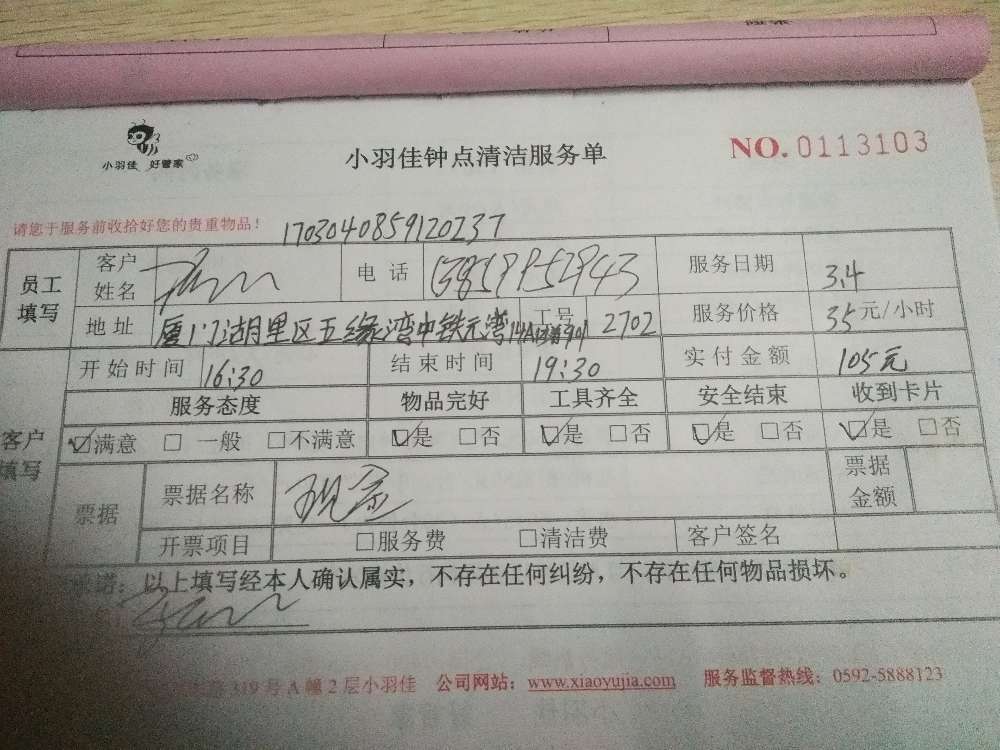 小羽佳 好管家
小羽佳钟点清洁服务单
NO. 0113103
请您于服务前收拾好您的贵重物品！ 1703040859120237
员工填写 客户姓名 电话 服务日期 3.4
地址 厦门湖里区五缘湾中铁元湾 工号 2702 服务价格 35元/小时
开始时间 16:30 结束时间 19:30 实付金额 105元
服务态度 物品完好 工具齐全 安全结束 收到卡片
客户填写 ☑满意 □一般 □不满意 ☑是 □否 ☑是 □否 ☑是 □否 ☑是 □否
票据 票据名称 现金 票据金额
开票项目 □服务费 □清洁费 客户签名
承诺：以上填写经本人确认属实，不存在任何纠纷，不存在任何物品损坏。
319号A幢2层小羽佳 公司网站：www.xiaoyujia.com 服务监督热线：0592-5888123